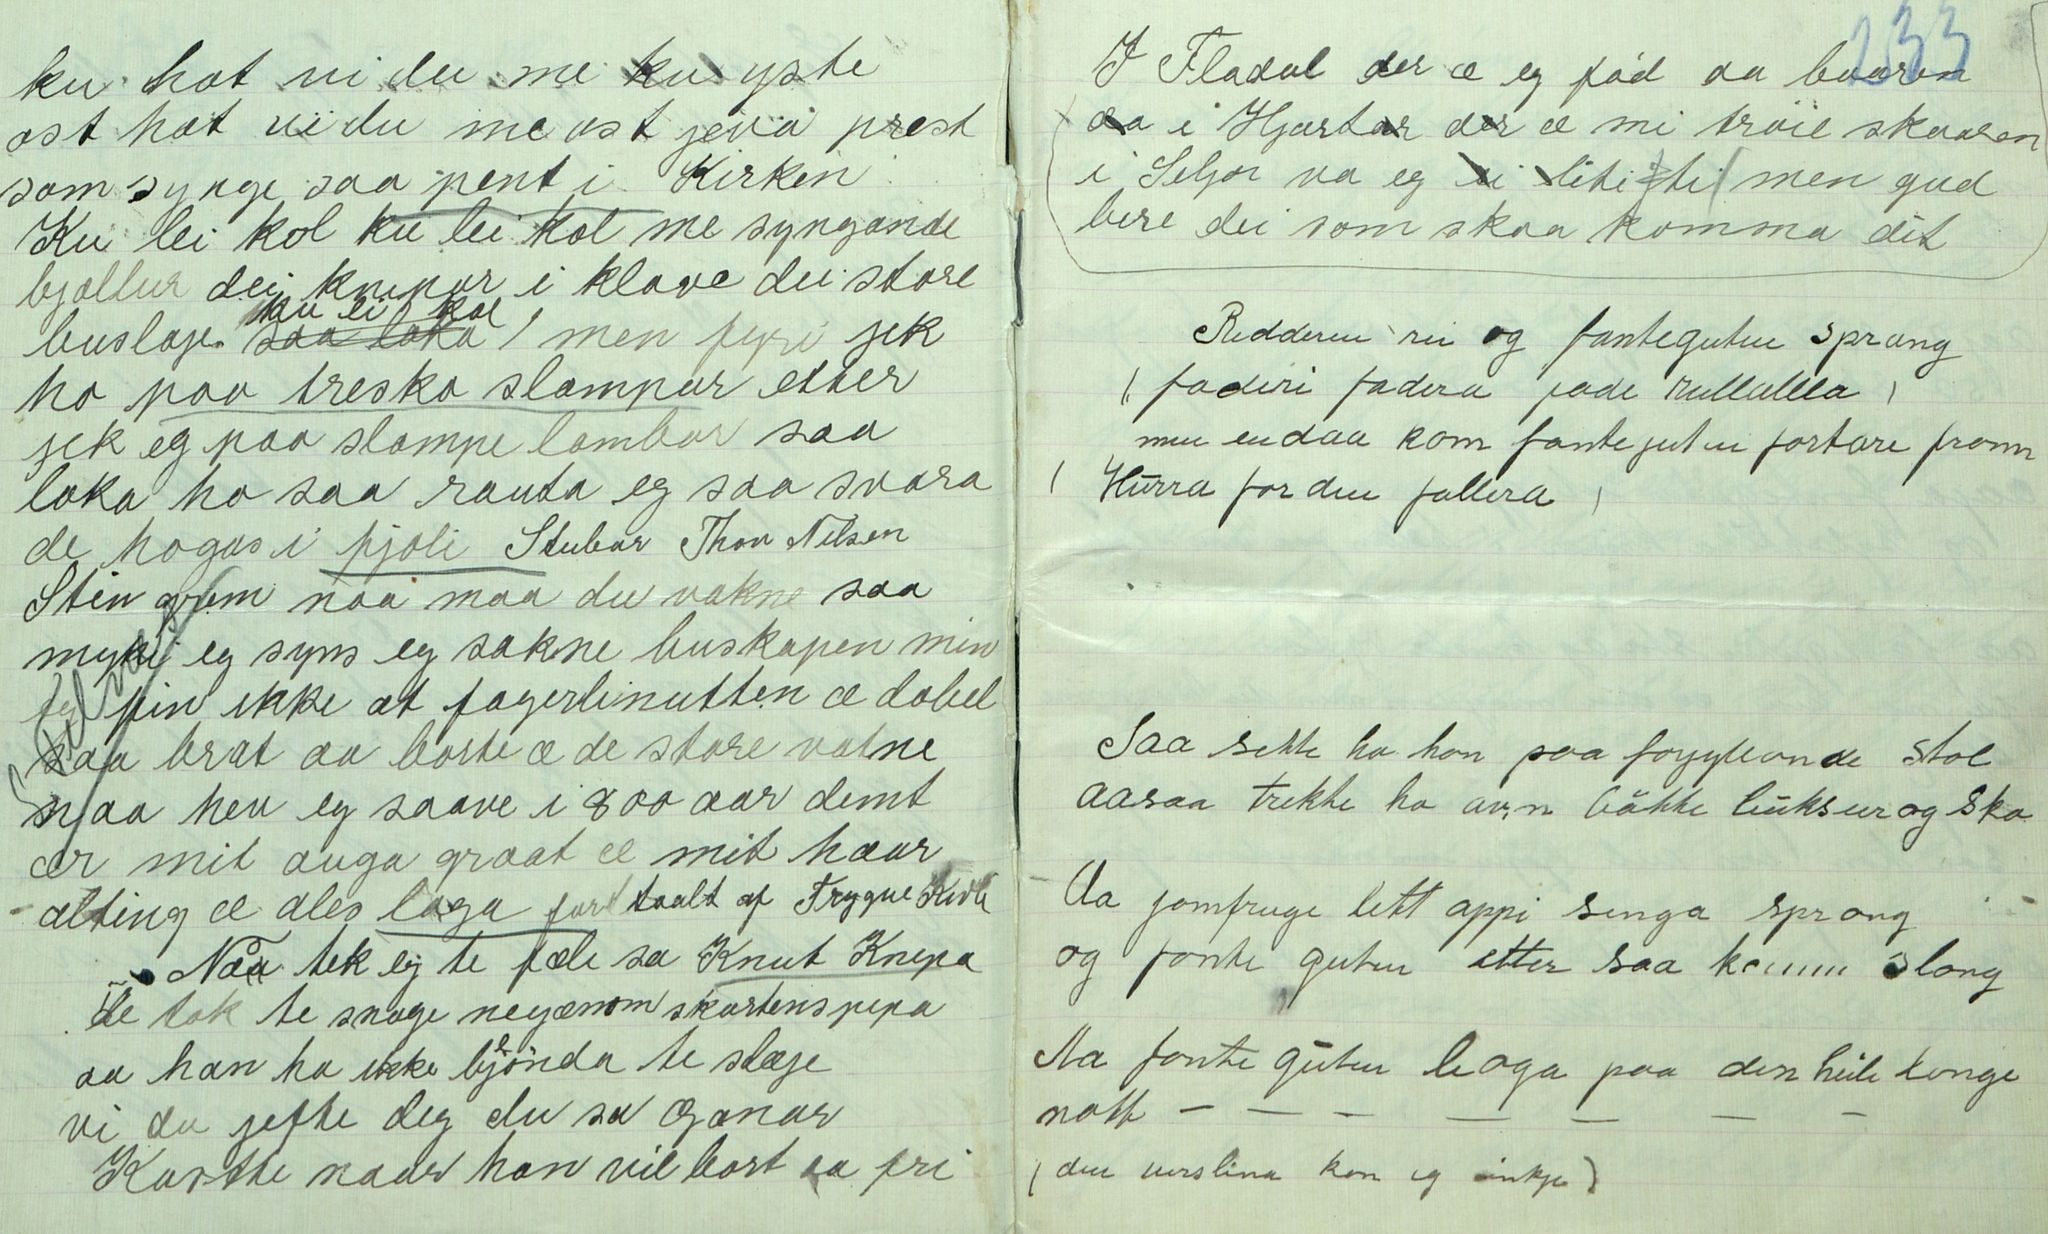 ku hat vi du me ku yste
ost hat vi du me ost jeva prest
som synge saa pent i Kirken
Ku lei kol ku lei kol me syngande
bjøllur dei knepar i klave dei store
buslaje ku lei kol saa loka men fyri jek
ho paa tresko slampar etter
jek eg paa slampe lambar saa
loka ho saa rauta eg saa svara
de hogas i fjøli Stubar Thov Nilsen
Stein grøm naa maa du vakne saa
mykj eg syns eg sakne buskapen min
fin ikke at fagerlinutten æ dobel
saa brat aa borte æ de store vatne
naa hev eg saave i 800 aar demt
ær mit auga graat æ mit haar
alting æ ales laga fortaalt af Trygve Kivle
Naa tek eg te fæle sa Knut Knepa
de tok te snøge negænom skortenspipa
aa han ha ikke bjønda te slæje
vi du jefte deg du sa Gonar
Kasthe naar han vil bort aa fri
233
I Fladal der æ eg fød aa baaren
aa i Hjartar der æ mi trøie skaaren
i Seljor va eg liti men gud
bere dei som skaa komma dit
Ridderen rei og fanteguten sprang
( faderi fadera fade rullalla )
men endaa kom fanteguten fortare fram
( Hurra for den fallera )
Saa sette ho han paa forgyllande stol
aasaa trekte ho av'n baahte buksur og sko
Aa jomfruge lett oppi senga sprang
og fante guten etter saa slang
Aa fante guten laaga paa den heile lange
nott — — — — — — —
( den verslina kan eg inkje )